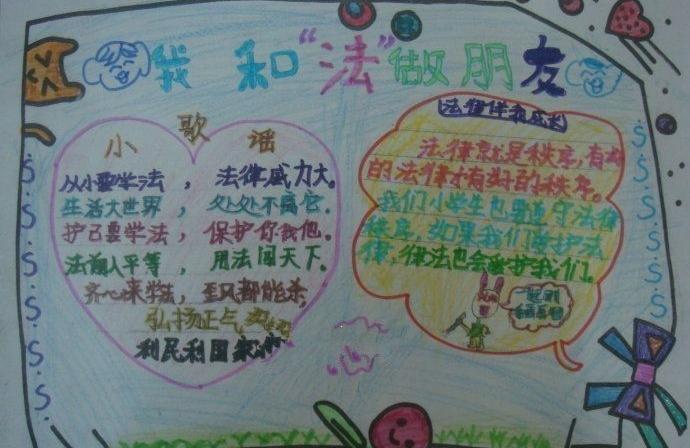 我和“法”做朋友
小歌谣
从小要学法，法律威力大。
生活大世界，处处不离它。
护己要学法，保护你我他。
法前人平等，用法闯天下。
齐心来学法，歪风都能杀，
弘扬正气
利民利国家
法律伴我成长
法律就是秩序，有好
的法律才有好的秩序。
我们小学生也要遵守法律
秩序，如果我们维护法
律，律法也会爱护我们。